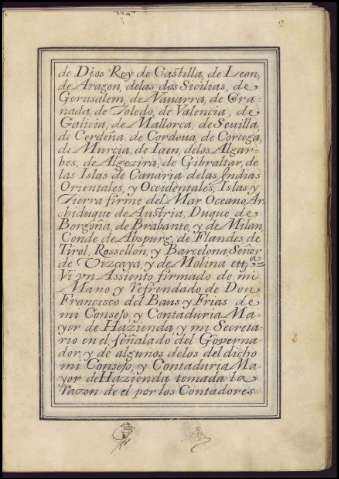 de Dios Rey de Castilla, de Leon,
de Aragon, delas dos Sicilias, de
Gerusalem, de Navarra, de Gra-
nada, de Toledo, de Valencia, de
Galicia, de Mallorca, de Sevilla,
de Cerdeña, de Cordoua, de Corcega,
de Murcia, de Iaen, delos Algar-
bes, de Algezira, de Gibraltar, de
las Islas de Canaria, delas Indias
Orientales, y Occidentales, Islas, y
Tierra firme del Mar Oceano, Ar
chiduque de Austria, Duque de
Borgoña, de Brabante, y de Milan,
Conde de Abspurg, de Flandes, de
Tirol, Rossellon, y Barcelona, Señor
de Vizcaya, y de Molina etcª
Vi vn Asiento firmado de mi
Mano y refrendado de Don
Francisco del Baus y Frias de
mi Consejo, y Contaduria Ma-
yor de Hazienda, y mi Secreta
rio en el señalado del Governa
dor, y de algunos delos del dicho
mi Consejo, y Contaduria Ma
yor de Hazienda tomada la
razon de el por los Contadores